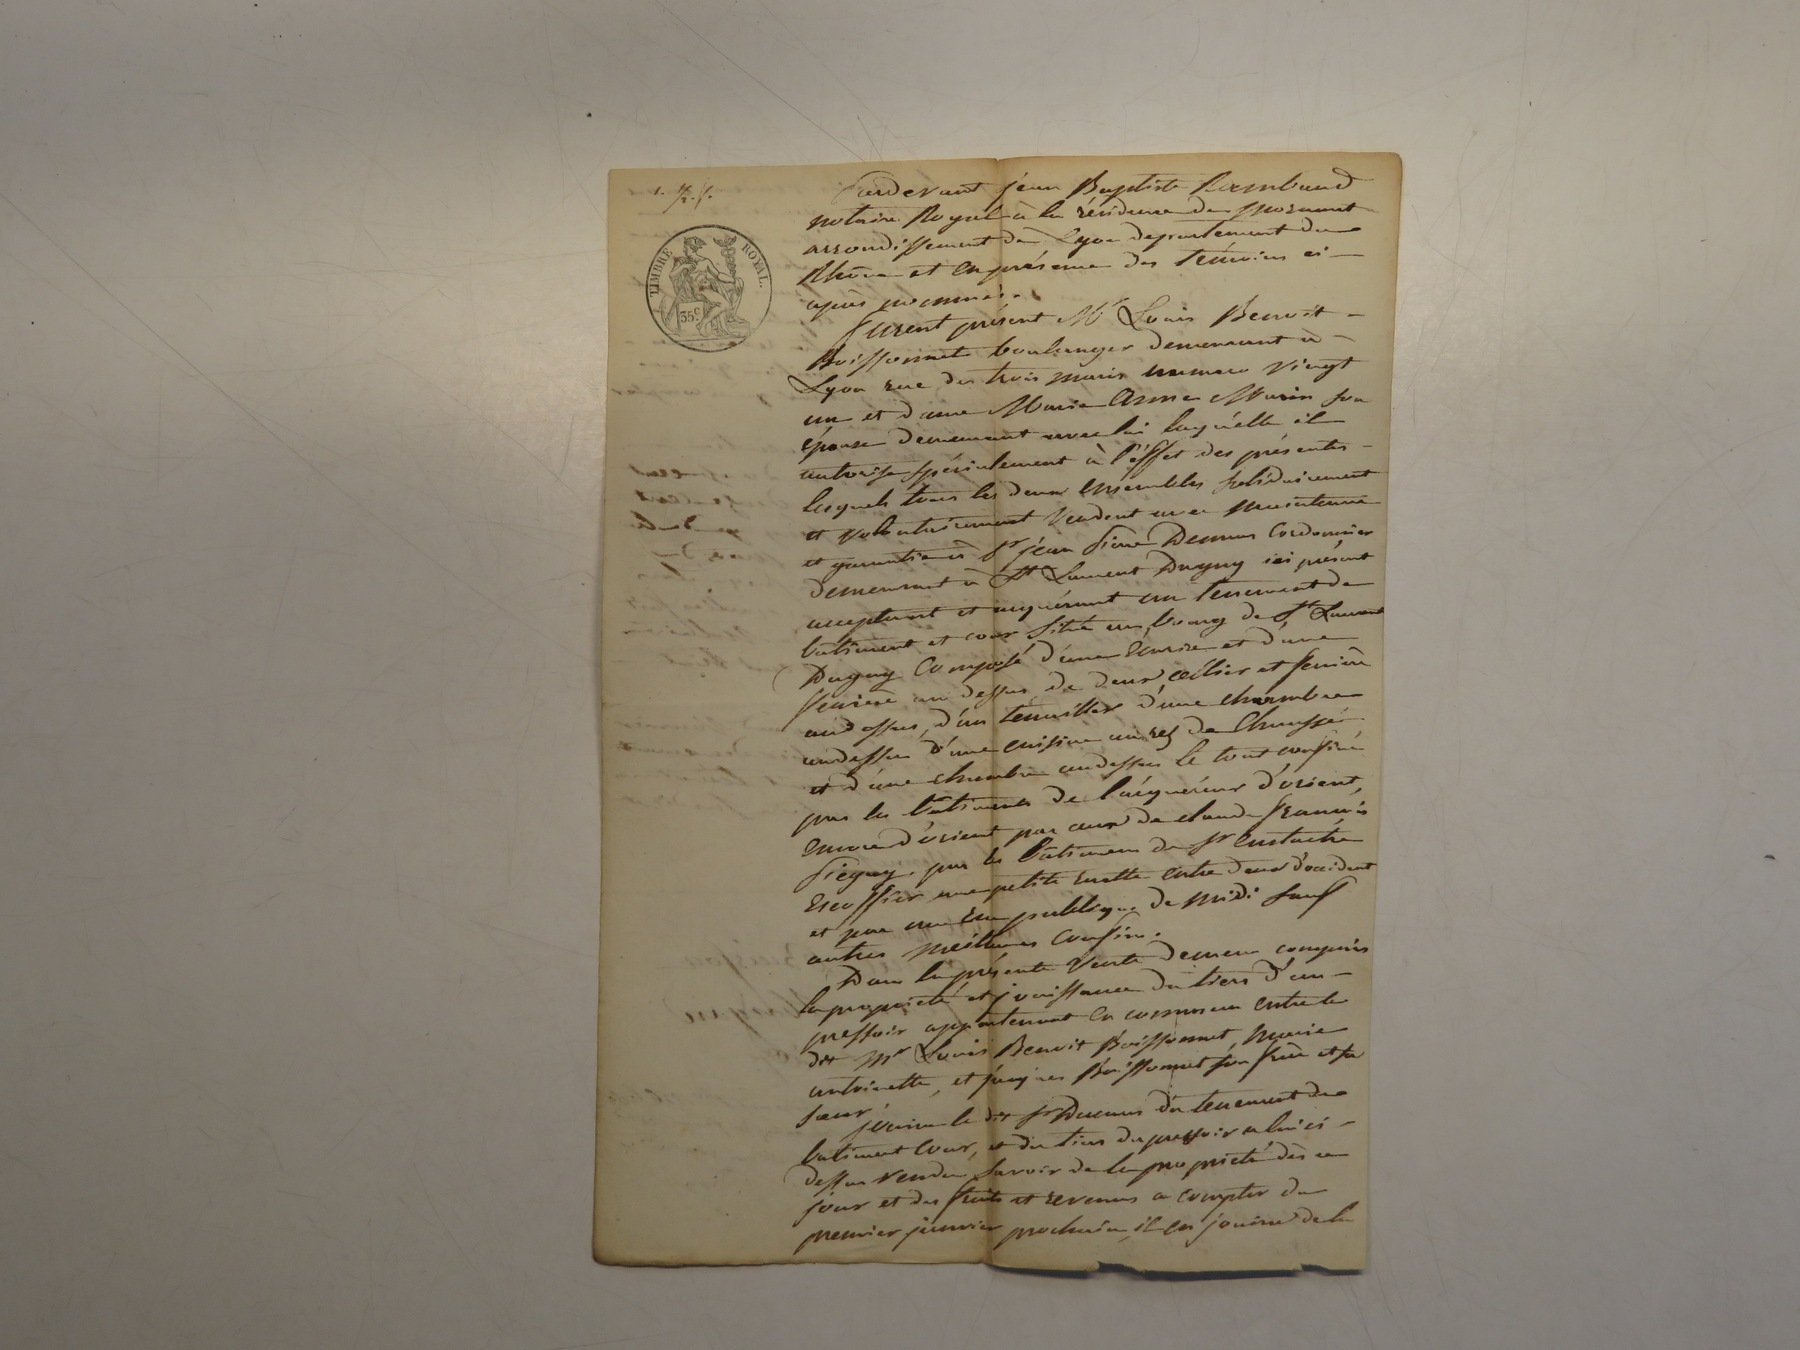 TIMBRE ROYAL.
35.c
Pardevant jean Baptiste Rambaud
notaire Royal à la résidence de mornant
arrondissement de Lyon departement du
Rhône et en présence des témoins ci
après nommés.
furent présent Mr Louis Benoit
Boissonnet boulanger demeurant à
Lyon rue des trois maries numero vingt
un et dame Marie Anne Morin son
épouse demeurant avec lui laquelle il
autorise spécialement à l'éffet des présentes
lesquels tous les deux ensembles solidairement
et volontairement vendent avec maintenue
et garantie à Sr jean Demus Cordonnier
demeurant à St Laurent Dagny ici présent
acceptant et acquérant un tenement de
batiment et cour situé au bourg de St Laurent
Dagny Composé d'une Ecurie et d'une
feniere au dessus, de deux cellier et feniere
audessus, d'un d'une chambre
audessus d'une cuisine au rez de chaussé
et d'une chambre audessus le tout confiné
par les bâtiments de l'acquéreur d'orient,
encore d'orient par ceux de claude françois
par les bâtimens de Sr Eustache
Escoffier une petite ruette entre deux d'occident
et par une rue publique de midi sauf
autres meilleures confins.
Dans la présente vente demeure compris
la propriété et jouissance du tiers d'un
pressoir appartenant en commun entre le
dit Mr Louis Benoit Boissonnet, marie
antoinette, et jacques Boissonnet son frère et sa
sœur
jouira le dit Sr Demus du tenement de
batiment Cour, et du tiers du pressoir a lui ci
dessus vendu savoir de la propriété dès ce
jour et des fruits et revenus a compter du
premier janvier prochain, il en jouira de la